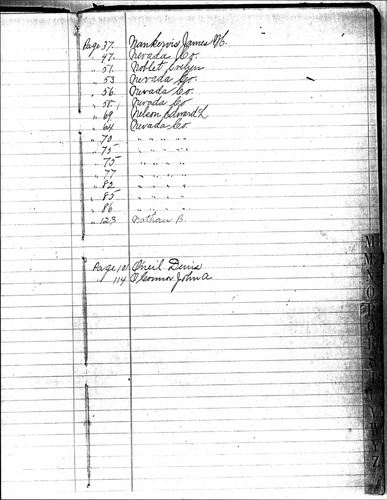 Page 37. Nankervis James H.
" 47. Nevada Co.
" 51. Noblet Evelyn
" 53 Nevada Co.
" 56. Nevada Co.
" 58. Nevada Co
" 69. Nelson Edward L
" 64. Nevada Co.
" 70 " " " "
" 75 " " " "
" 75 " " " "
" 77 " " " "
" 82 " " " "
" 85 " " " "
" 86 " " " "
" 123 Nathan B.
Page 101 O'Neil Denis
" 114 O'Connor John A